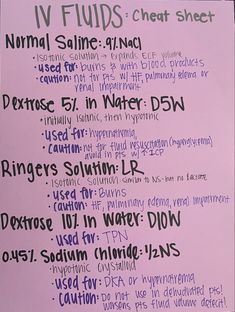 IV FLUIDS: Cheat Sheet
Normal Saline: .9% NaCl
• Isotonic solution → expands ECF volume
• used for: burns & with blood products
• caution: not for pts w/ HF, pulmonary edema or
renal impairment
Dextrose 5% in Water: D5W
• initially isotonic, then hypotonic
• used for: hypernatremia,
• Caution: not for fluid resuscitation (hyperglycemia)
avoid in pts w/ ↑ICP
Ringers Solution: LR
• Isotonic Solution similar to NS-but no lactate
• used for: Burns
• caution: HF, pulmonary edema, renal impairment
Dextrose 10% in Water: D10W
• used for: TPN
0.45% Sodium Chloride: 1/2NS
• hypotonic crystalloid
• used for: DKA or hypernatremia,
• Caution: Do not use in dehydrated pts!
worsens pts fluid volume deficit!